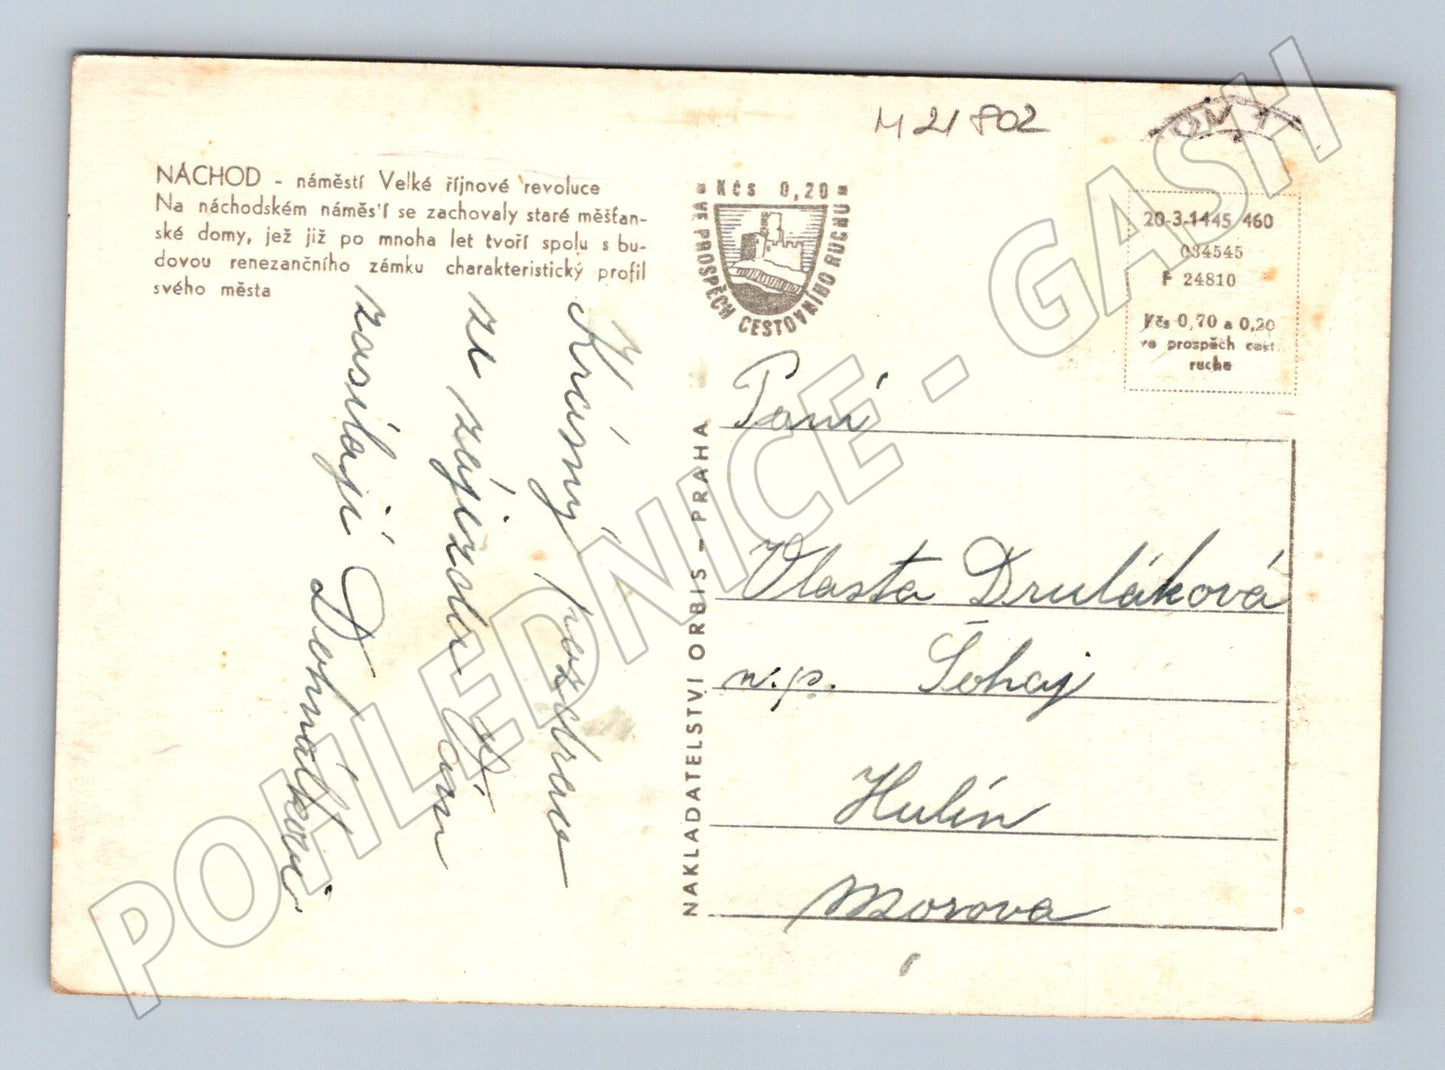 M 21802
OM 1
NÁCHOD - náměstí Velké říjnové revoluce
Na náchodském náměstí se zachovaly staré měšťan-
ské domy, jež již po mnoha let tvoří spolu s bu-
dovou renezančního zámku charakteristický profil
svého města
Kčs 0,20
VE PROSPĚCH CESTOVNÍHO RUCHU
20-3-1445 460
034545
F 24810
Kčs 0,70 a 0,20
ve prospěch cest.
ruchu
Krásný pozdrav
ze zájezdu Vám
zasílají Dohnálkovi
NAKLADATELSTVI ORBIS - PRAHA
Paní
Vlasta Druláková
n.p. Šohaj
Hulín
Morava
POHLEDNICE - GASH